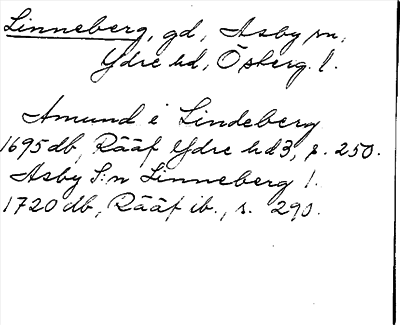 Linneberg, gd, Asby sn,
Ydre hd, Österg. l.
Amund i Lindeberg
1695 db, Rääf Ydre hd 3, s. 250.
Asby S:n Linneberg l.
1720 db, Rääf ib., s. 290.